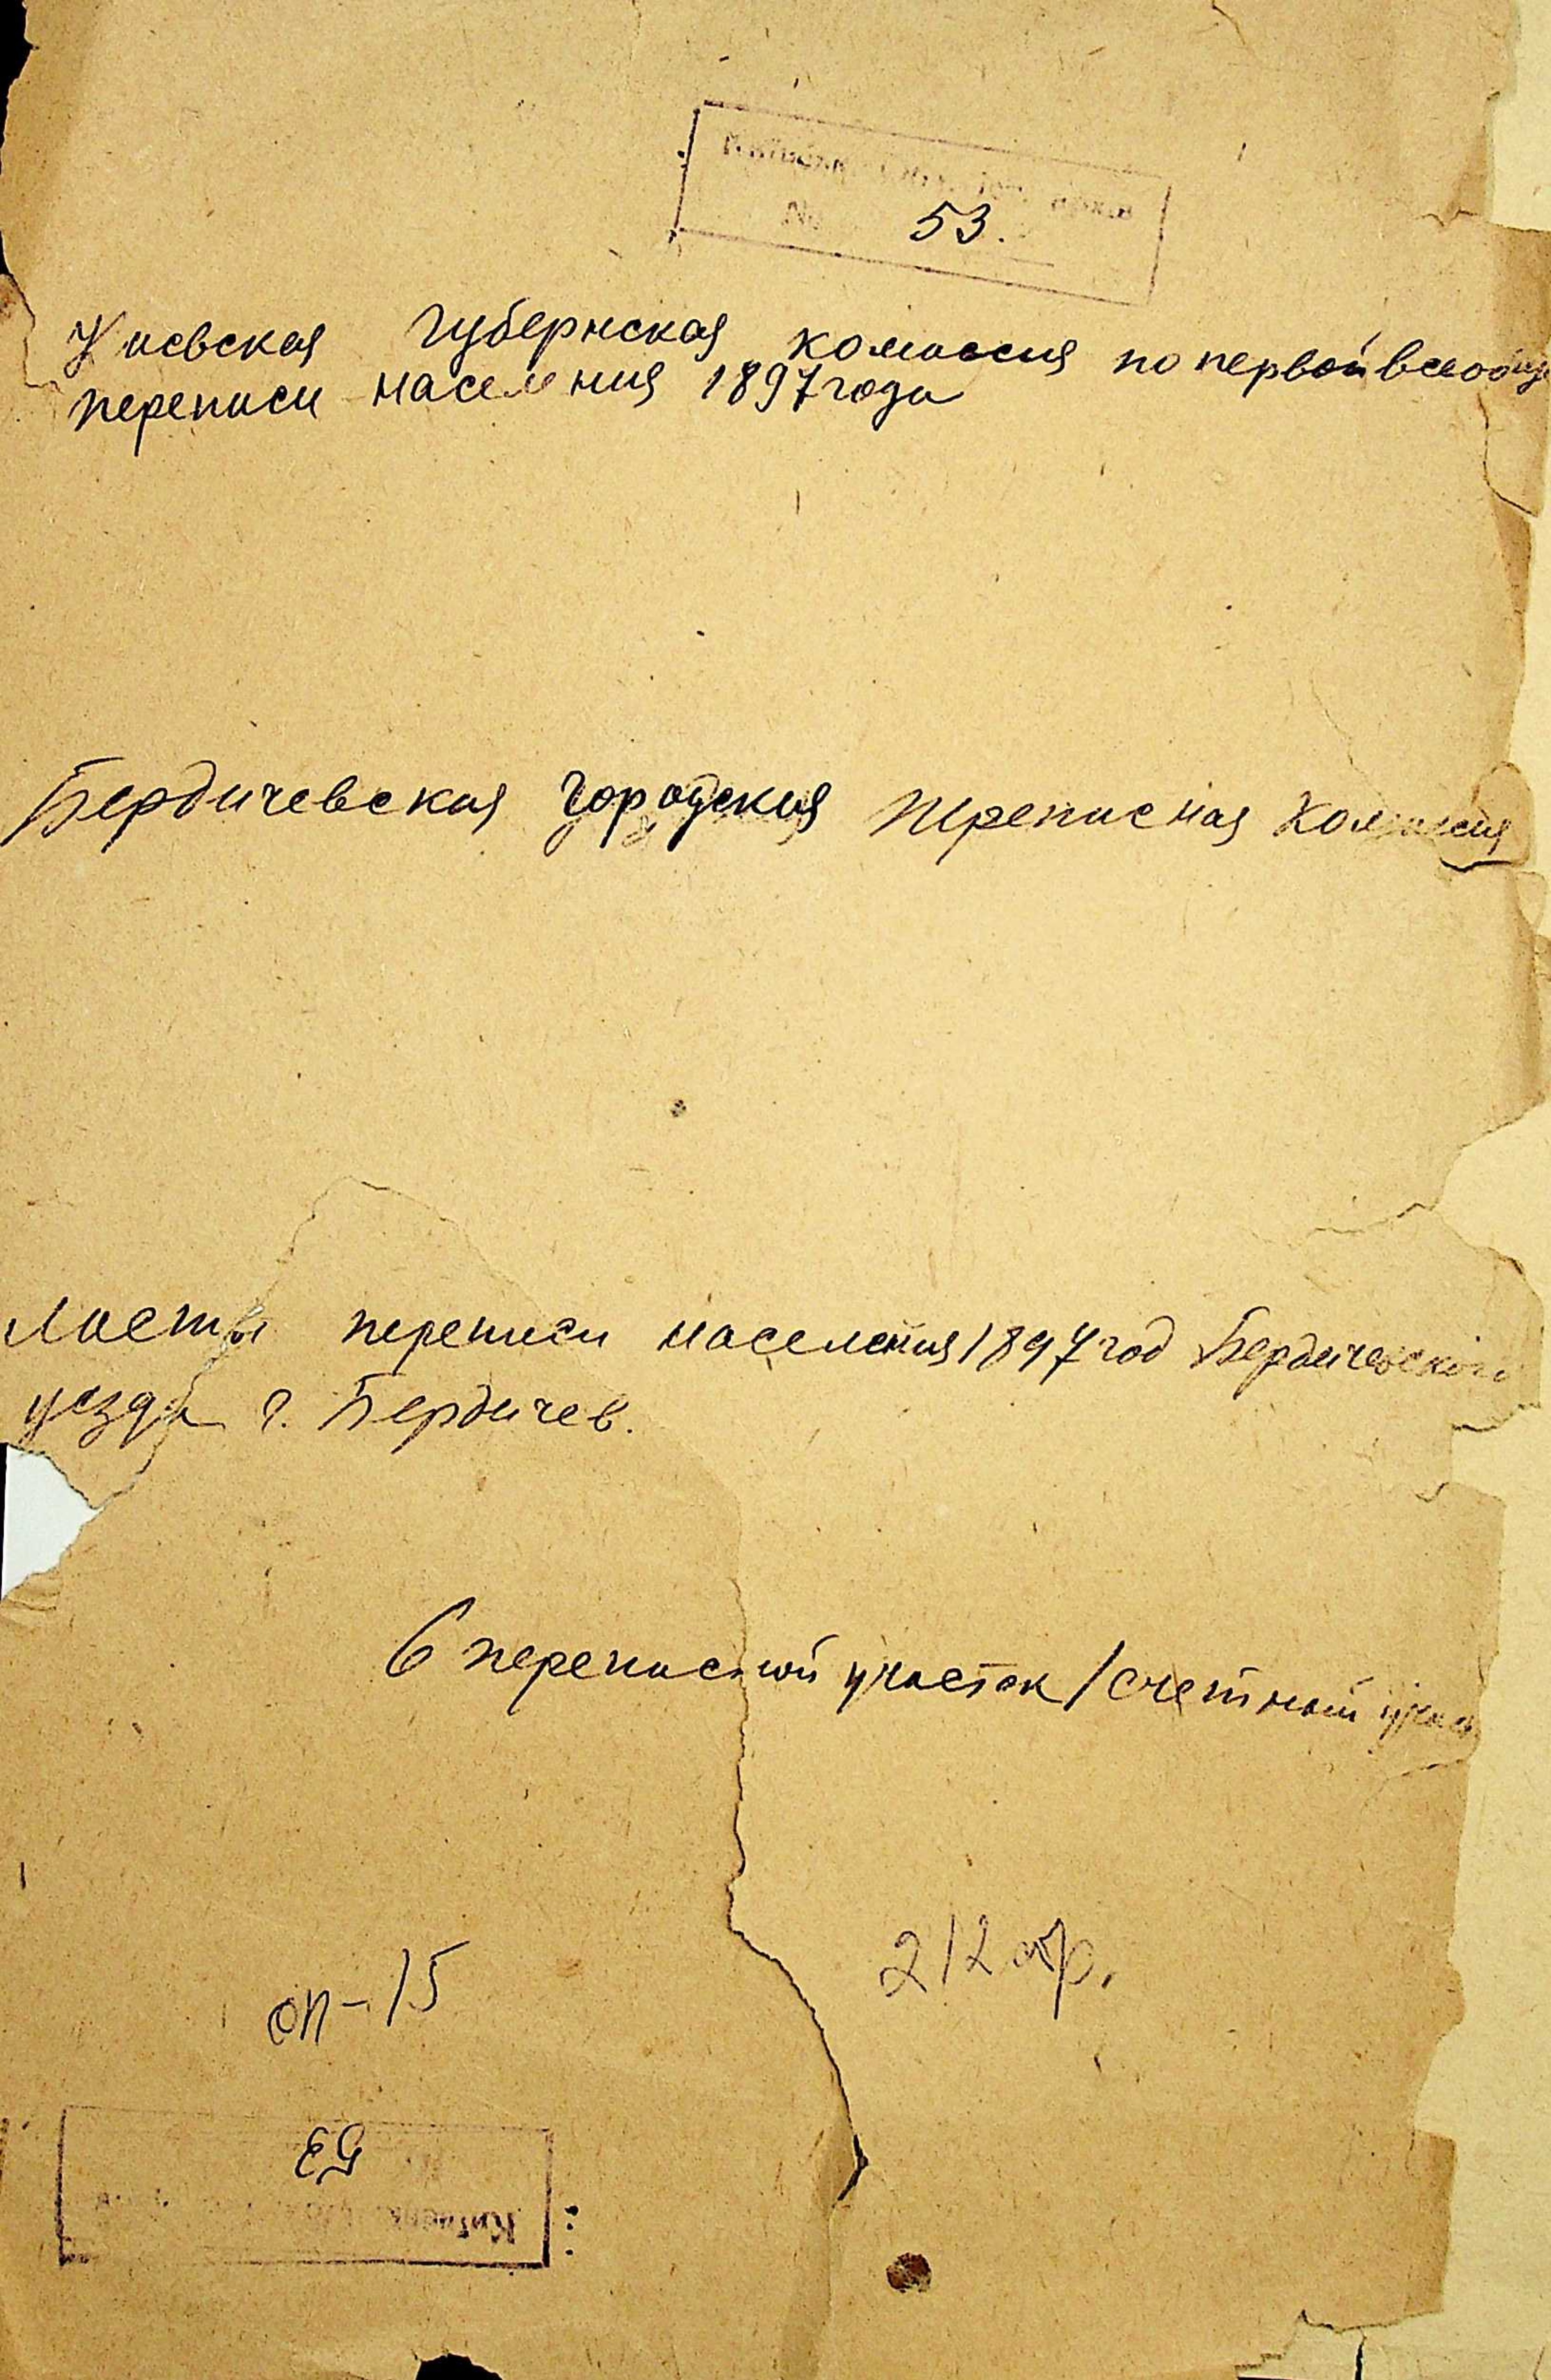 № 53.
Киевская губернская комиссия по первой всеобщ
переписи населения 1897 года
Бердичевская городская переписная комиссия
листы переписи населения 1897 год Бердичевского
уезда г. Бердичев.
6 переписной участок / счетный учас
оп – 15
212 стр.
53